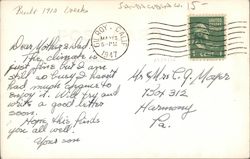 Built 1912 weeks
15-
GILROY CALIF.
6-PM
1947
Dear Mother & Dad,
The climate is
just fine but I am
still so busy I haven't
had much chance to
enjoy it. Will try and
write a good letter
soon.
Hope this finds
you all well!
Your son
Mr & Mrs C. G. Moyer
Box 312
Harmony
Pa.